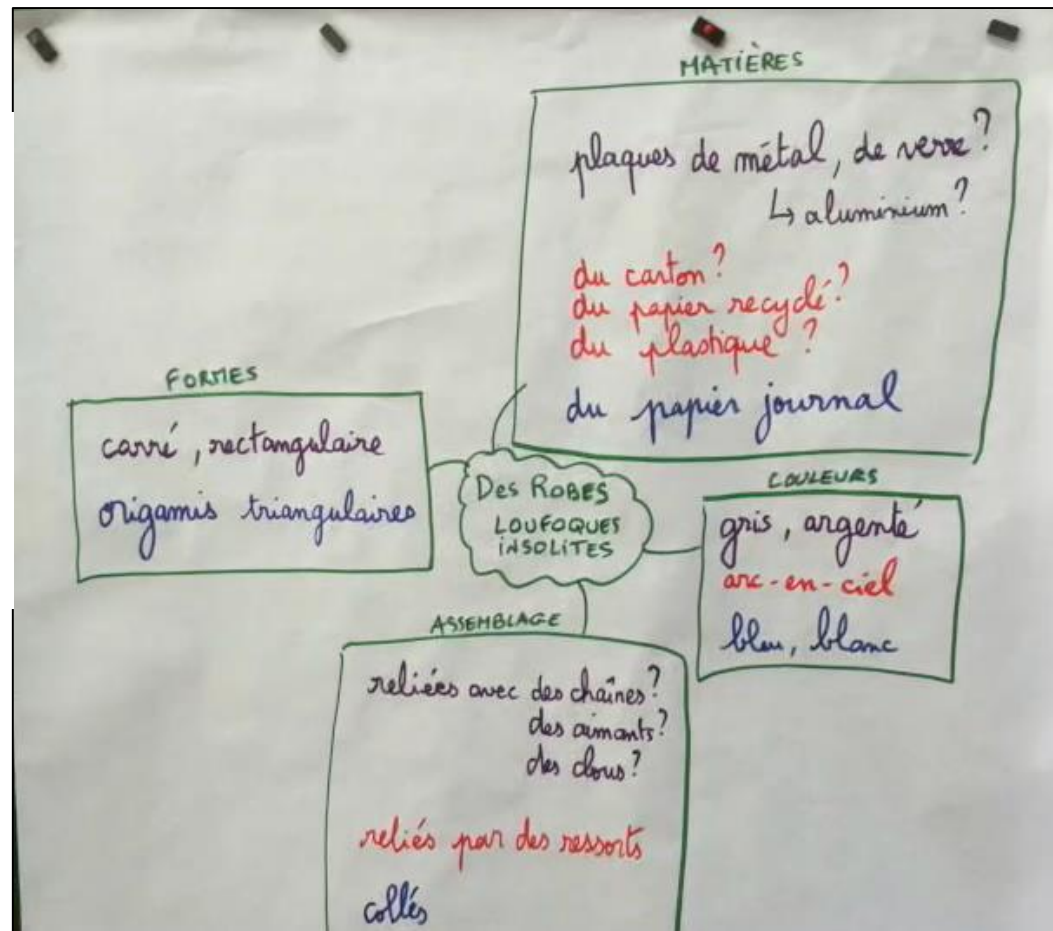 MATIÈRES
plaques de métal, de verre?
↳ aluminium?
du carton?
du papier recyclé?
du plastique?
du papier journal
FORMES
carré, rectangulaire
origamis triangulaires
Des ROBES
LOUFOQUES
iNSOLiTES
COULEURS
gris, argenté
arc-en-ciel
bleu, blanc
ASSEMBLAGE
reliées avec des chaînes?
des aimants?
des clous?
reliés par des ressorts
collés